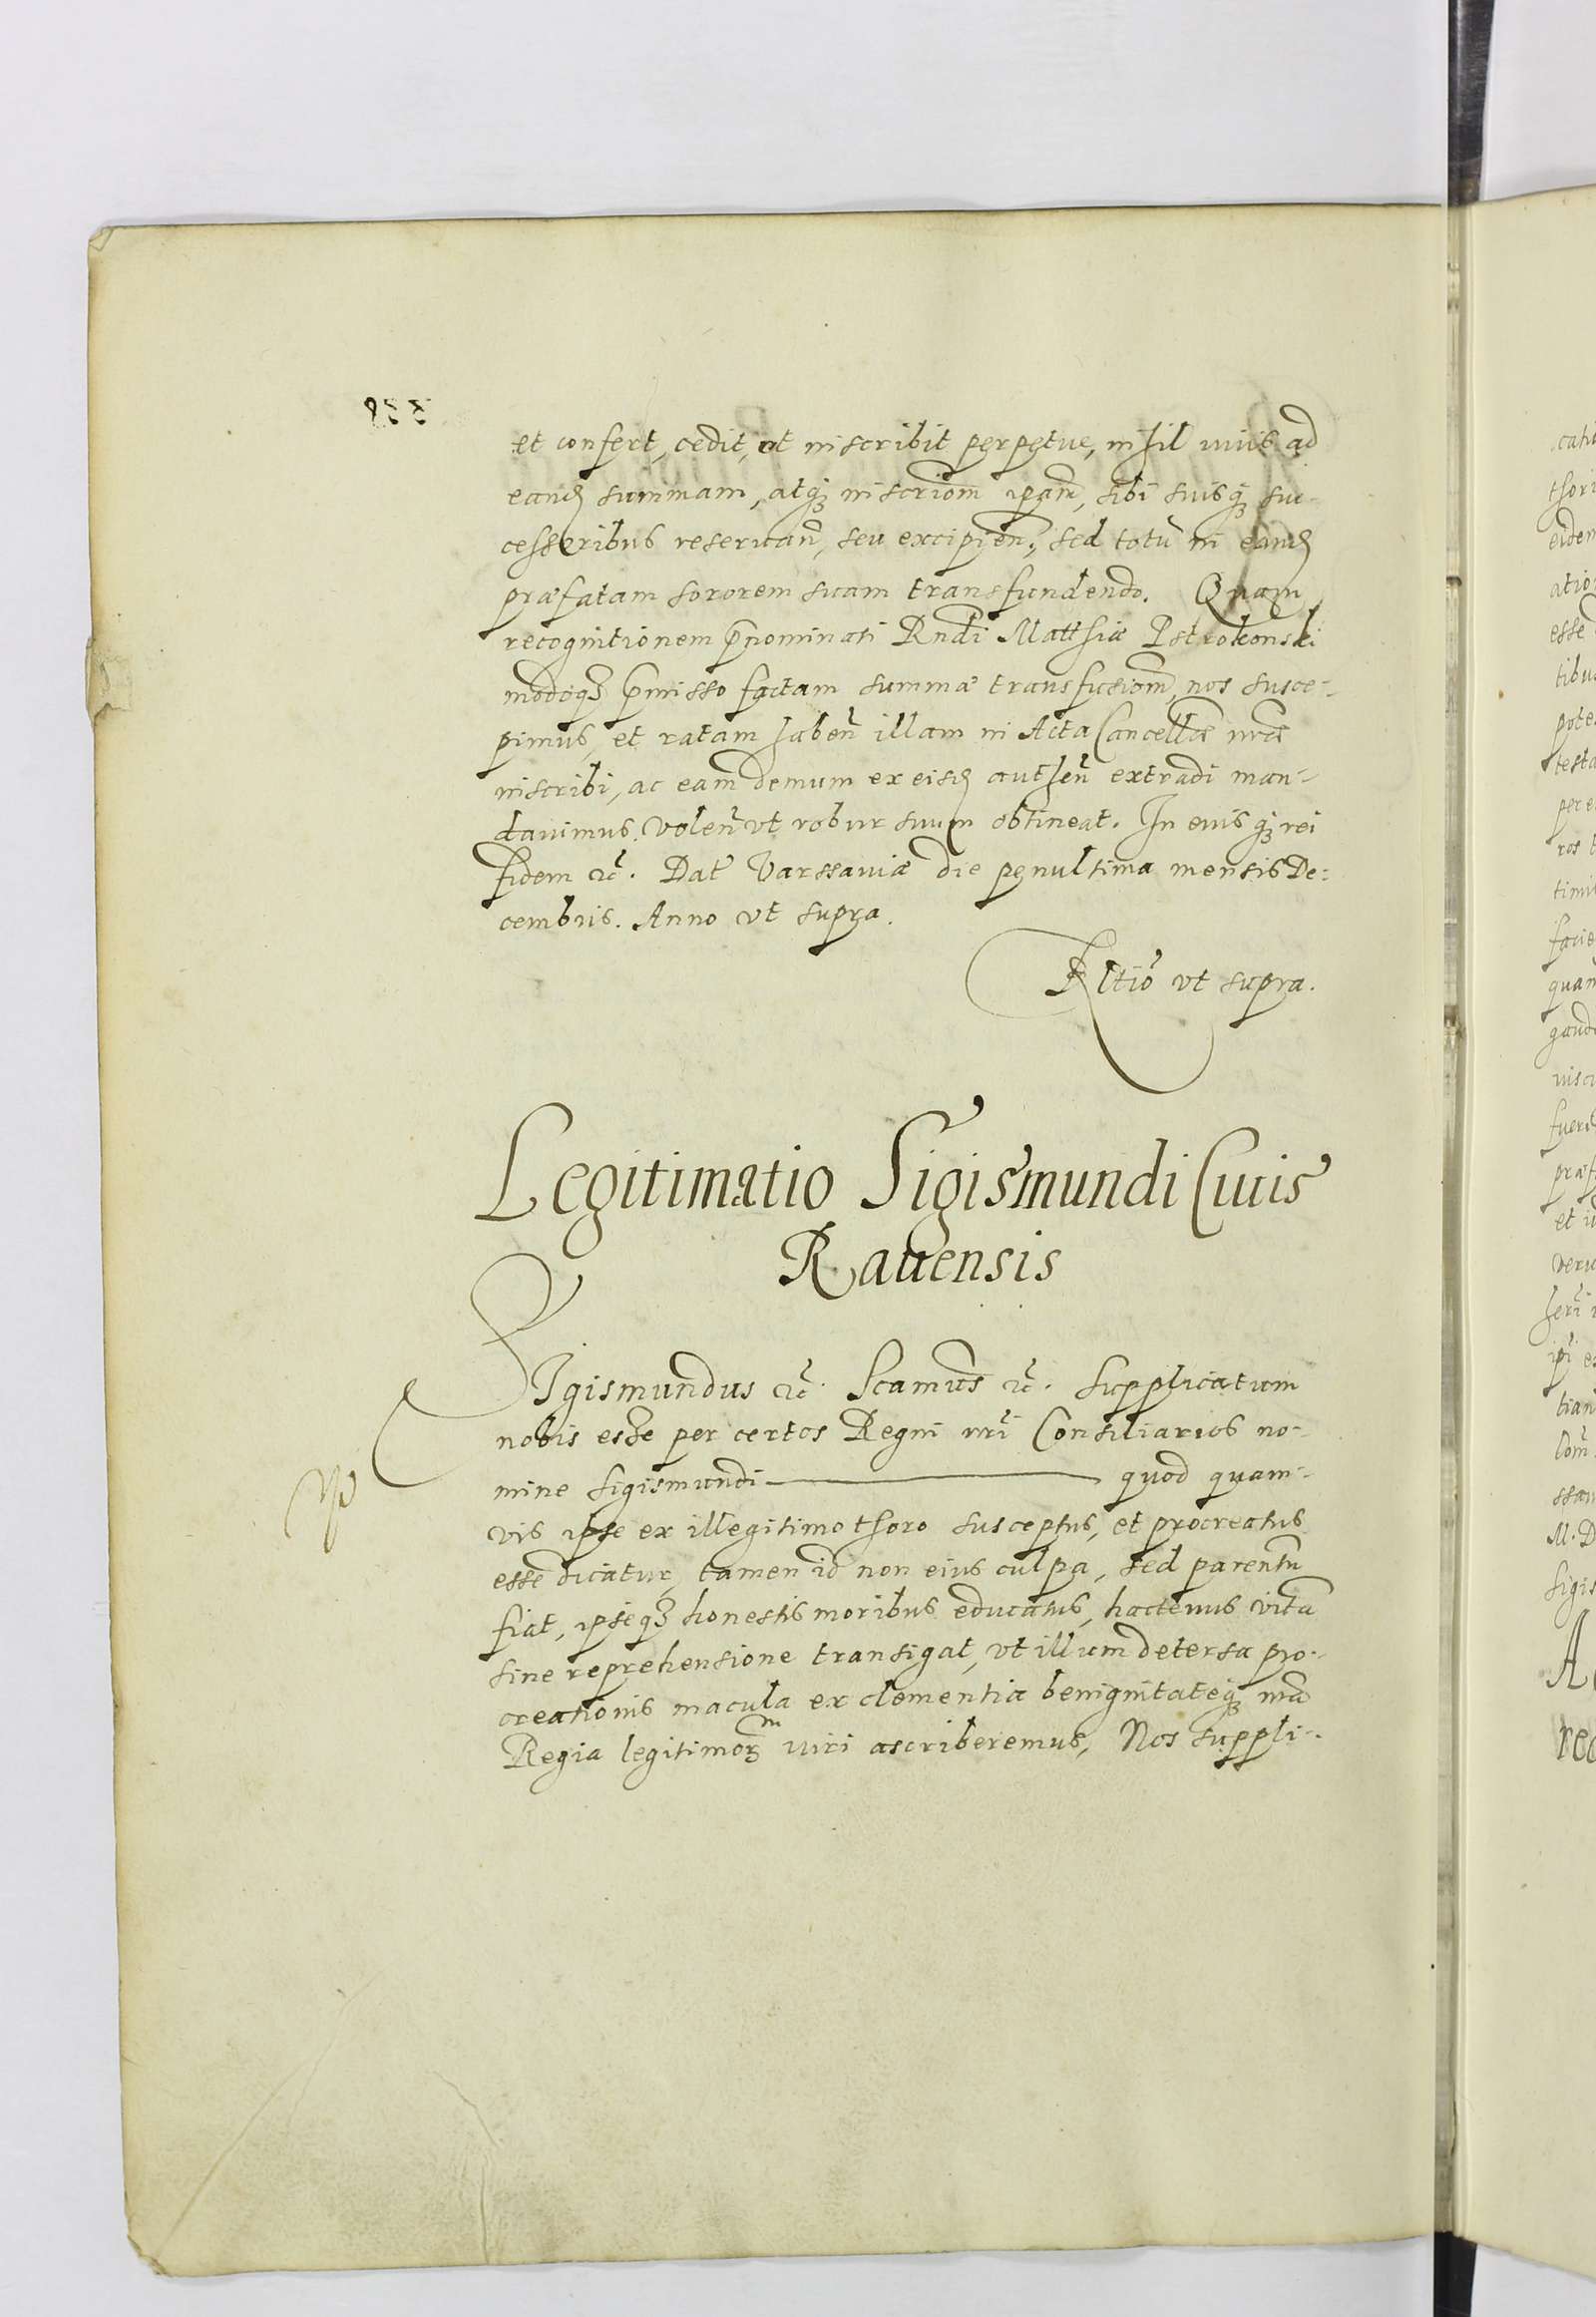 et confert, cedit, et inscribit perpetue, nihil iuris ad
eand summam, atq inscriom ipam, sibi suisq suc-
cessoribus reseruan, seu excipien, sed totu in eand
præfatam sororem suam transfundendo. Quam
recognitionem pnominati Rndi Matthiæ Pstrokonski
modoq pmisso factam summæ transfusiom, nos susce-
pimus, et ratam haben illam in Acta Cancellæ nræ
inscribi, ac eam demum ex eisd authen extradi man-
dauimus, volen vt robur suum obtineat. In cuius q rei
fidem etc. Dat Varssauiæ die penultima mensis De-
cembris. Anno vt supra.
Rltio vt supra.
Legitimatio Sigismundi Ciuis
Rauensis
Sigismundus etc. Scamus etc. Supplicatum
nobis esse per certos Regni nri Consiliarios no-
mine Sigismundi quod quam-
vis ipse ex illegitimo thoro susceptus, et procreatus
esse dicatur, tamen id non eius culpa, sed parentu
fiat, ipseq honestis moribus educatus, hactenus vita
sine reprehensione transigat, vt illum detersa pro-
creationis macula ex clementia benignitateq nra
Regia legitimor iuri ascriberemus, Nos suppli-